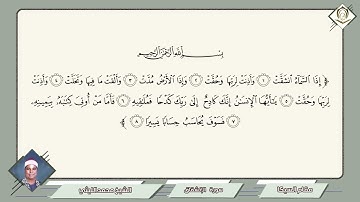 بسم الله الرحمن الرحيم
﴿ إِذَا ٱلسَّمَآءُ ٱنشَقَّتْ ١ وَأَذِنَتْ لِرَبِّهَا وَحُقَّتْ ٢ وَإِذَا ٱلْأَرْضُ مُدَّتْ ٣ وَأَلْقَتْ مَا فِيهَا وَتَخَلَّتْ ٤ وَأَذِنَتْ
لِرَبِّهَا وَحُقَّتْ ٥ يَـٰٓأَيُّهَا ٱلْإِنسَـٰنُ إِنَّكَ كَادِحٌ إِلَىٰ رَبِّكَ كَدْحًا فَمُلَـٰقِيهِ ٦ فَأَمَّا مَنْ أُوتِىَ كِتَـٰبَهُۥ بِيَمِينِهِۦ
٧ فَسَوْفَ يُحَاسَبُ حِسَابًا يَسِيرًا ٨ ﴾
مقام السيكا
سورة الانشقاق
الشيخ محمد الليثي